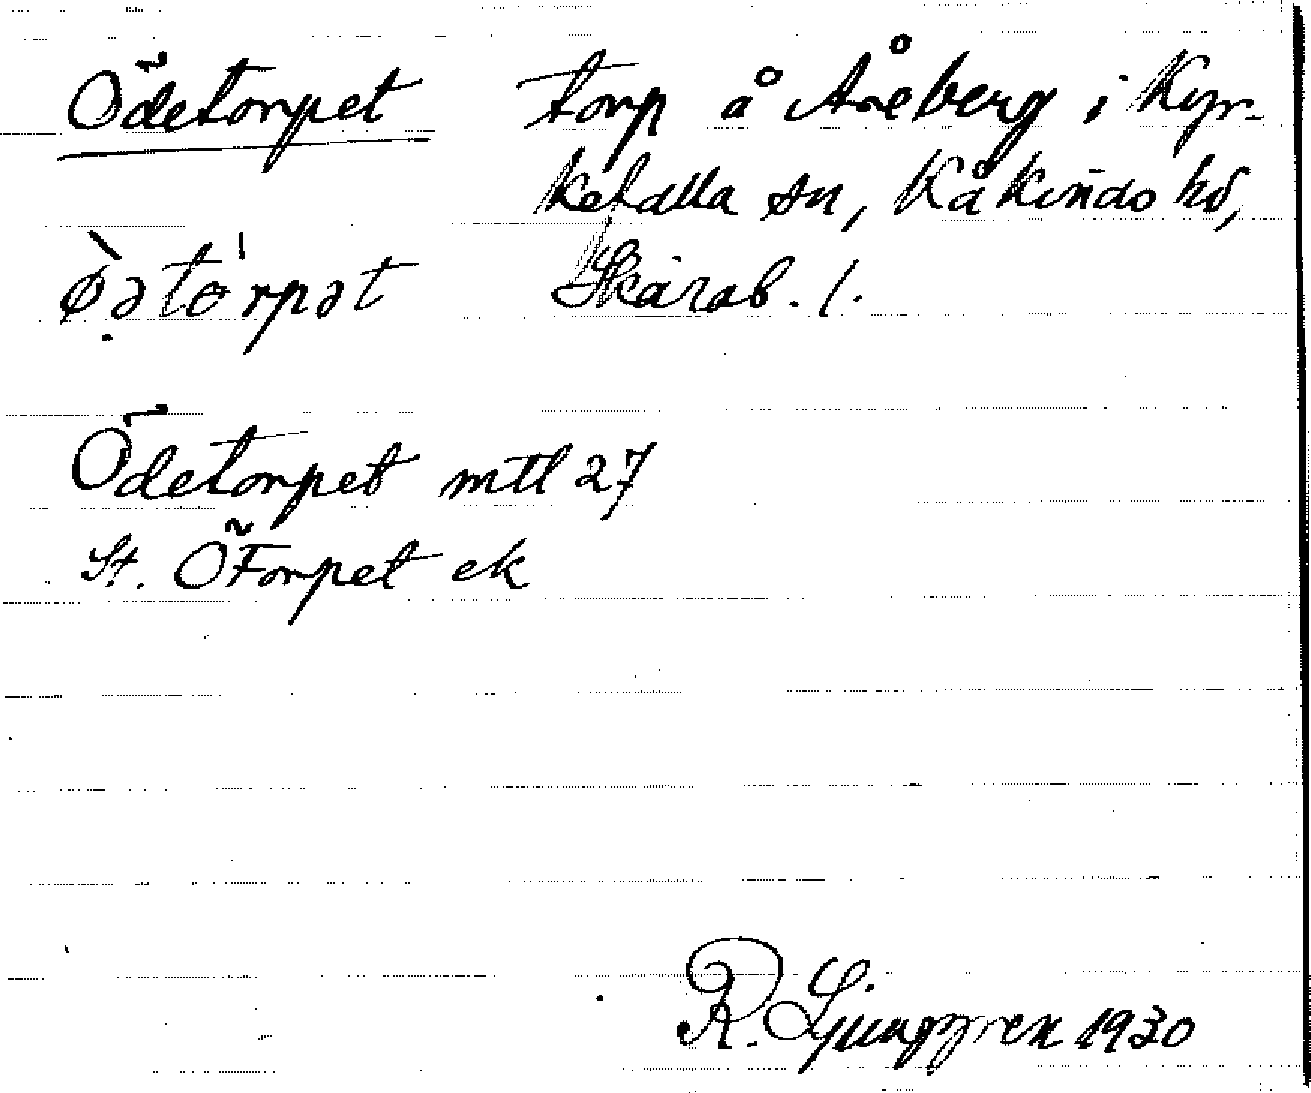 Ödetorpet torp å Åreberg i Kyr-
ketalla sn, Kåkinds hd,
Skarab. l.
ö̀ətɵ'rpət
Ödetorpet mtl 27
St. Ötorpet ek
R. Ljunggren 1930